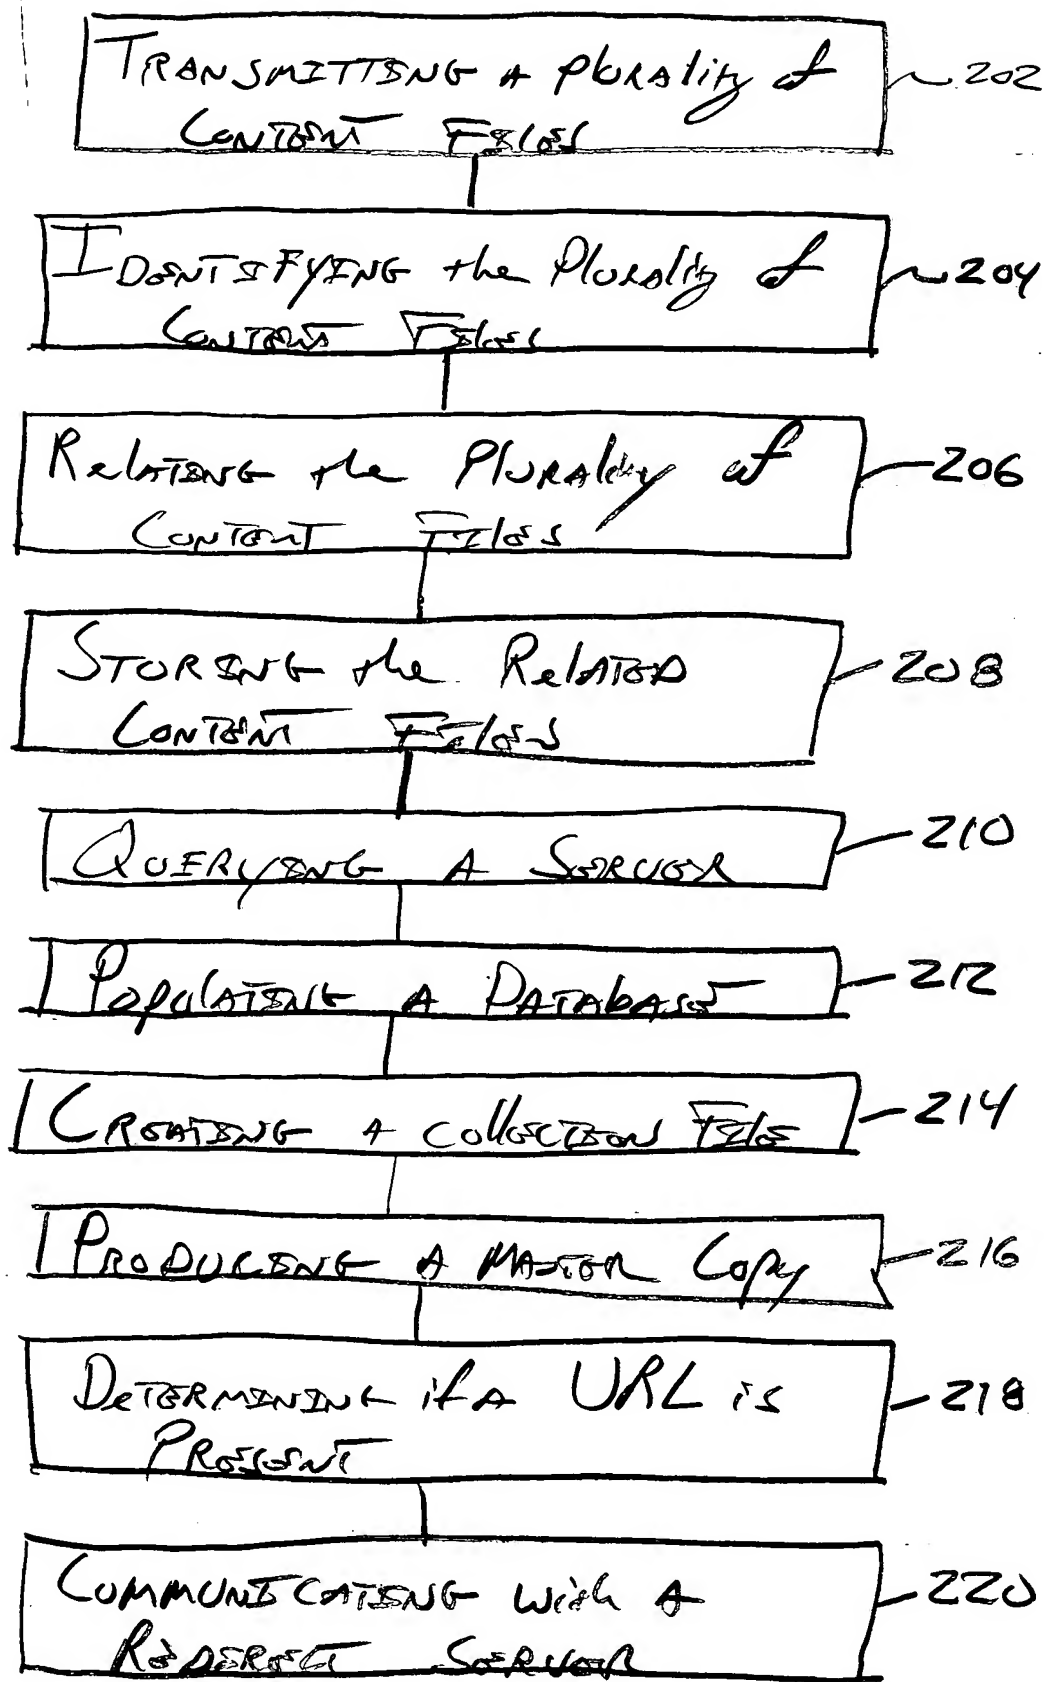 TRANSMITTING A Plurality of 202
CONTENT FILES
IDENTIFYING the Plurality of 204
CONTENT FILES
Relating the Plurality of 206
CONTENT FILES
STORING the Related 208
CONTENT FILES
QUERYING A SERVER 210
Populating A Database 212
CREATING A collection File 214
PRODUCING A MASTER Copy 216
DETERMINING if A URL is 218
PRESENT
COMMUNICATING with A 220
REDIRECT SERVER